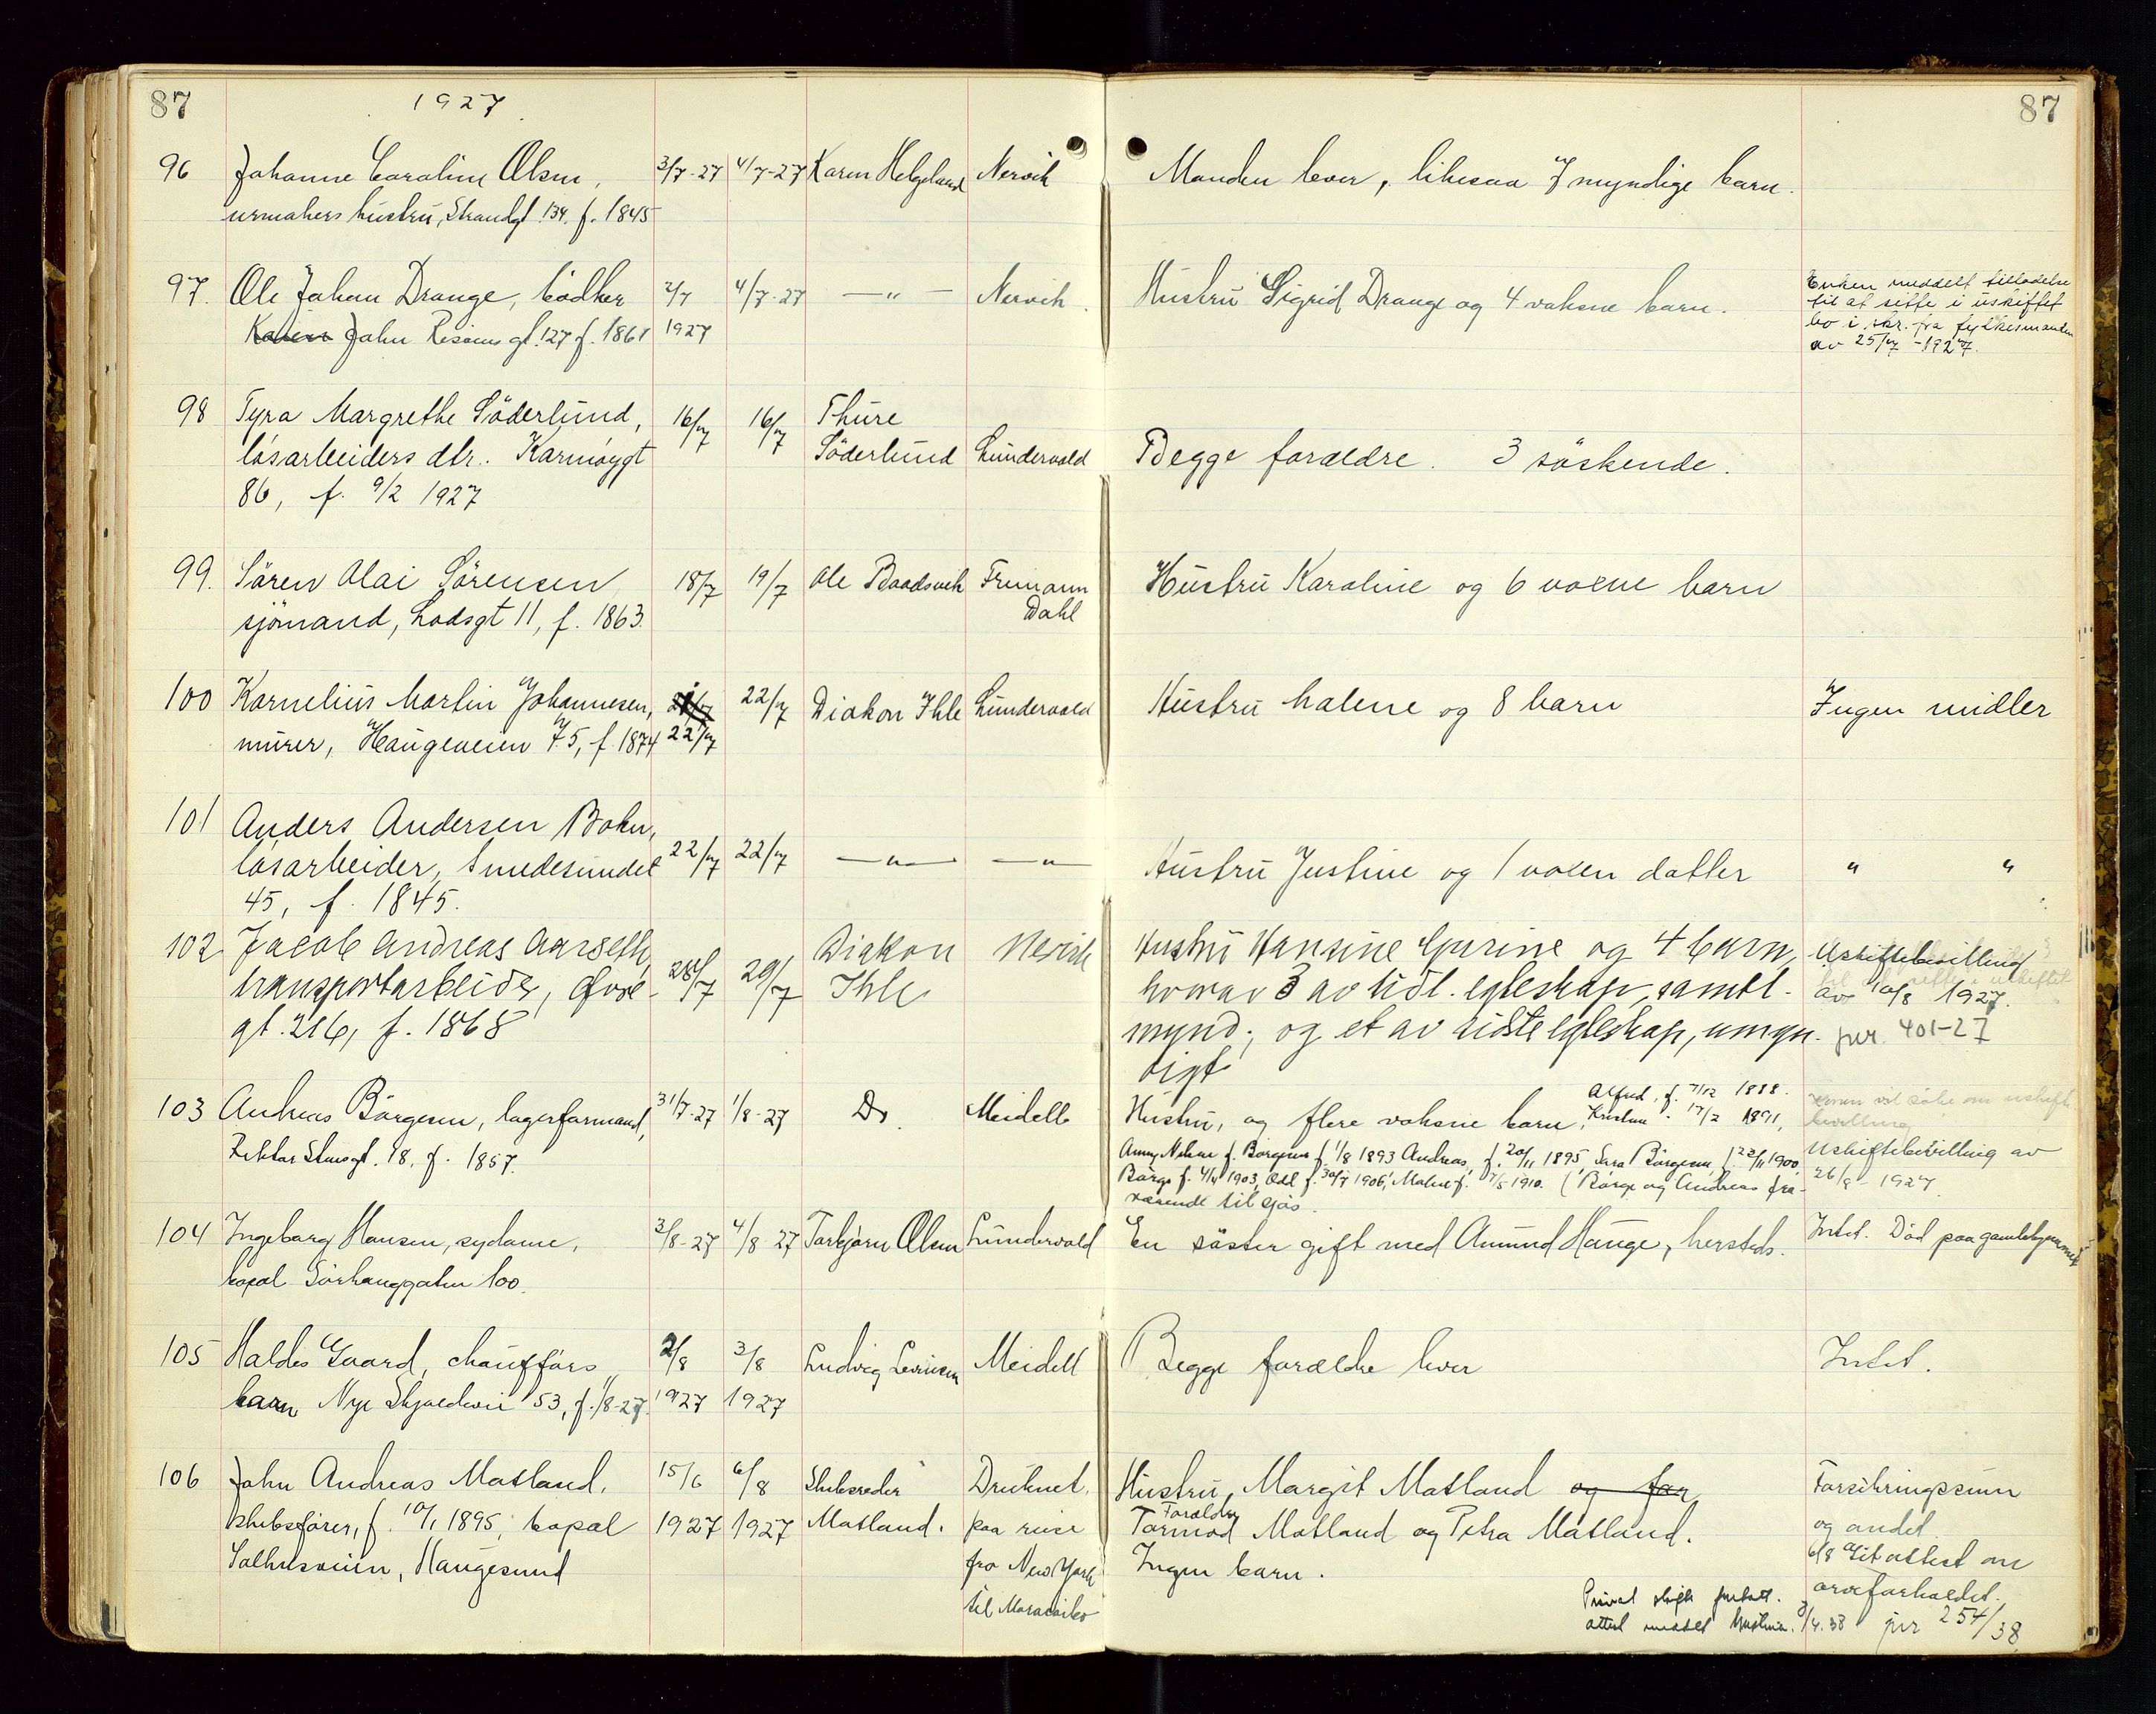 87 1927 87
96 Johanne Caroline Olsen, 3/7-27 4/7-27 Karen Helgeland Nervik Manden lever, likesaa 7 myndige barn.
urmakers hustru, Strandgt 134. f. 1845
97. Ole Johan Drange, bødker 2/7 4/7-27 —"— Nervik Hustru Sigrid Drange og 4 voksne barn.
John gt. 127 f. 1861 1927
Enken meddelt tilladelse
til at sitte i uskiftet
bo i skr. fra fylkesmanden
av 25/7-1927.
98 Tyra Margrethe Söderlund, 16/7 16/7 Thure
løsarbeiders dtr. Karmøygt Söderlund Lundervold Begge forældre. 3 søskende.
86, f. 9/2 1927
99. Sören Olai Sörensen 18/7 19/7 Ole Baadsvik Frimann Hustru Karoline og 6 voxne barn
sjømand, Lodsgt 11, f. 1863. Dahl
100 Kornelius Martin Johannesen, 22/7 Diakon Ihle Lundervold Hustru Malene og 8 barn Ingen midler
murer, Haugeveien 75, f. 1874 22/7
101 Anders Andersen Bokn,
løsarbeider, Smedesundet 22/7 22/7 —"— —"— Hustru Justine og 1 voxen datter " "
45, f. 1845.
102 Jacob Andreas Aarseth, Diakon Nervik Hustru Hansine Gurine og 4 barn, Uskiftebevilling
transportarbeider, Øvre- 28/7 29/7 Ihle hvorav 3 av tidl. egteskap, samtl. av 10/8 1927.
gt. 216, f. 1868 mynd., og et av sidste egteskap, umyn- jnr. 401-27
digt
103 Andreas Börgesen, lagerformand, 31/7-27 1/8-27 Do. Meidell Hustru, og flere voksne barn, Alfred, f. 7/12 1888.
Kristian - 17/2 1891,
Rektor Steensgt. 18, f. 1857.
f. Börgesen f. 1/8 1893 Andreas, f. 20/11 1895, Sara Börgesen, f. 23/11 1900, Uskiftebevilling av
Börge f. 4/4 1903, Odd f. 30/7 1906, f. 7/5 1910. (Börge og Andreas fra- 26/8-1927.
værende til sjøs.
104 Ingeborg Hansen, sydame, 3/8-27 4/8-27 Torbjørn Olsen Lundervold En søster gift med Amund Hauge, hersteds. Intet. Död paa gamlehjemmet
bopæl Sörhauggaten 100.
105 Haldis Gaard, chaufførs 2/8 3/8 Ludvig Meidell Begge forældre lever Intet.
barn Nye Skjoldvei 53, f. 1/8-27. 1927 1927
106 John Andreas Matland, 15/6 6/8 Skibsreder Druknet Hustru Margit Matland og far Forsikringssum
Forældre
skibsfører, f. 10/1 1895, bopæl 1927 1927 Matland. paa reise Tormod Matland og Petra Matland. og andet.
Salhusveien, Haugesund fra New York Ingen barn. 6/8 Git attest om
til Maracaibo arveforholdet.
Privat skifte
attest meddelt hustruen. 8/4.38 jnr 254/38